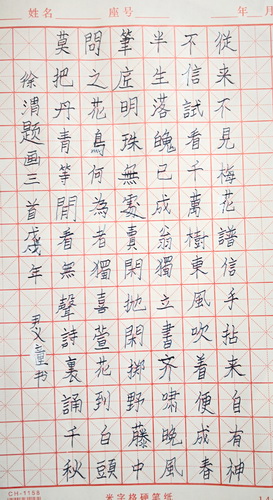 姓名 座号 年 月
從来不見梅花譜信手拈来自有神
不信試看千萬樹東風吹着便成春
半生落魄已成翁獨立書齐嘯晚風
筆底明珠無處賣閑抛閑擲野藤中
問之花鳥何為者獨喜萱花到白頭
莫把丹青等閒看無聲詩裏誦千秋
徐渭题画三首 年 书
CH-1155
米字格硬笔纸